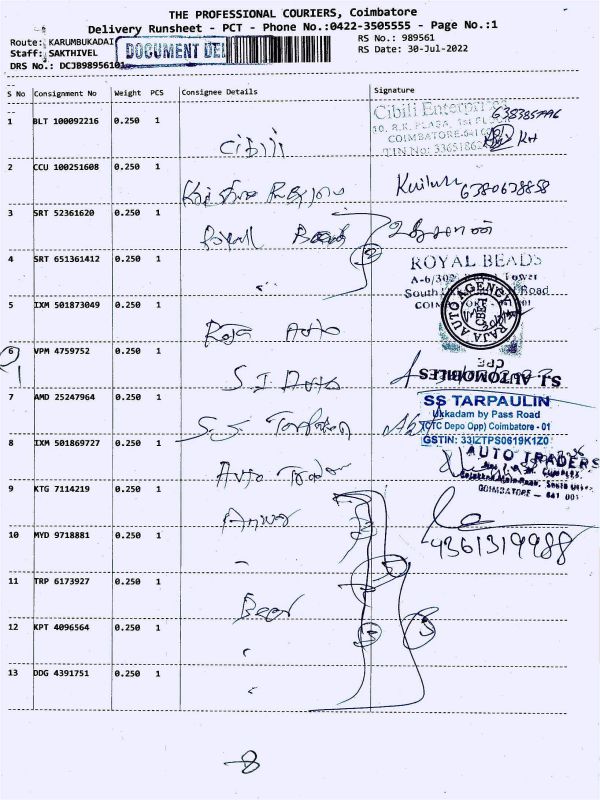 THE PROFESSIONAL COURIERS, Coimbatore
Delivery Runsheet - PCT - Phone No.:0422-3505555 - Page No.:1
Route: KARUMBUKADAI
RS No.: 989561
Staff: SAKTHIVEL
DOCUMENT DEL
RS Date: 30-Jul-2022
DRS No.: DCJB98956101
S No Consignment No Weight PCS Consignee Details Signature
1 BLT 100092216 0.250 1
Cibili Enterprises
COIMBATORE-641
Cibili
2 CCU 100251608 0.250 1
6380678858
3 SRT 52361620 0.250 1
Royal Beads
4 SRT 651361412 0.250 1
ROYAL BEADS
Tower
South Road
RAJA AUTO AGENCY
CBE-1
5 IXM 501873049 0.250 1
Raja Auto
6 VPM 4759752 0.250 1
S.I Auto
S.I. AUTOMOBILES
CBE
7 AMD 25247964 0.250 1
SS TARPAULIN
Ukkadam by Pass Road
(CTC Depo Opp) Coimbatore - 01
GSTIN: 33IZTPS0619K1Z0
S.S. Tarpaulin
8 IXM 501869727 0.250 1
AUTO TRADERS
COIMBATORE - 641 001
Auto Traders
9 KTG 7114219 0.250 1
Anwar
10 MYD 9718881 0.250 1
9361319988
11 TRP 6173927 0.250 1
12 KPT 4096564 0.250 1
13 DDG 4391751 0.250 1
8